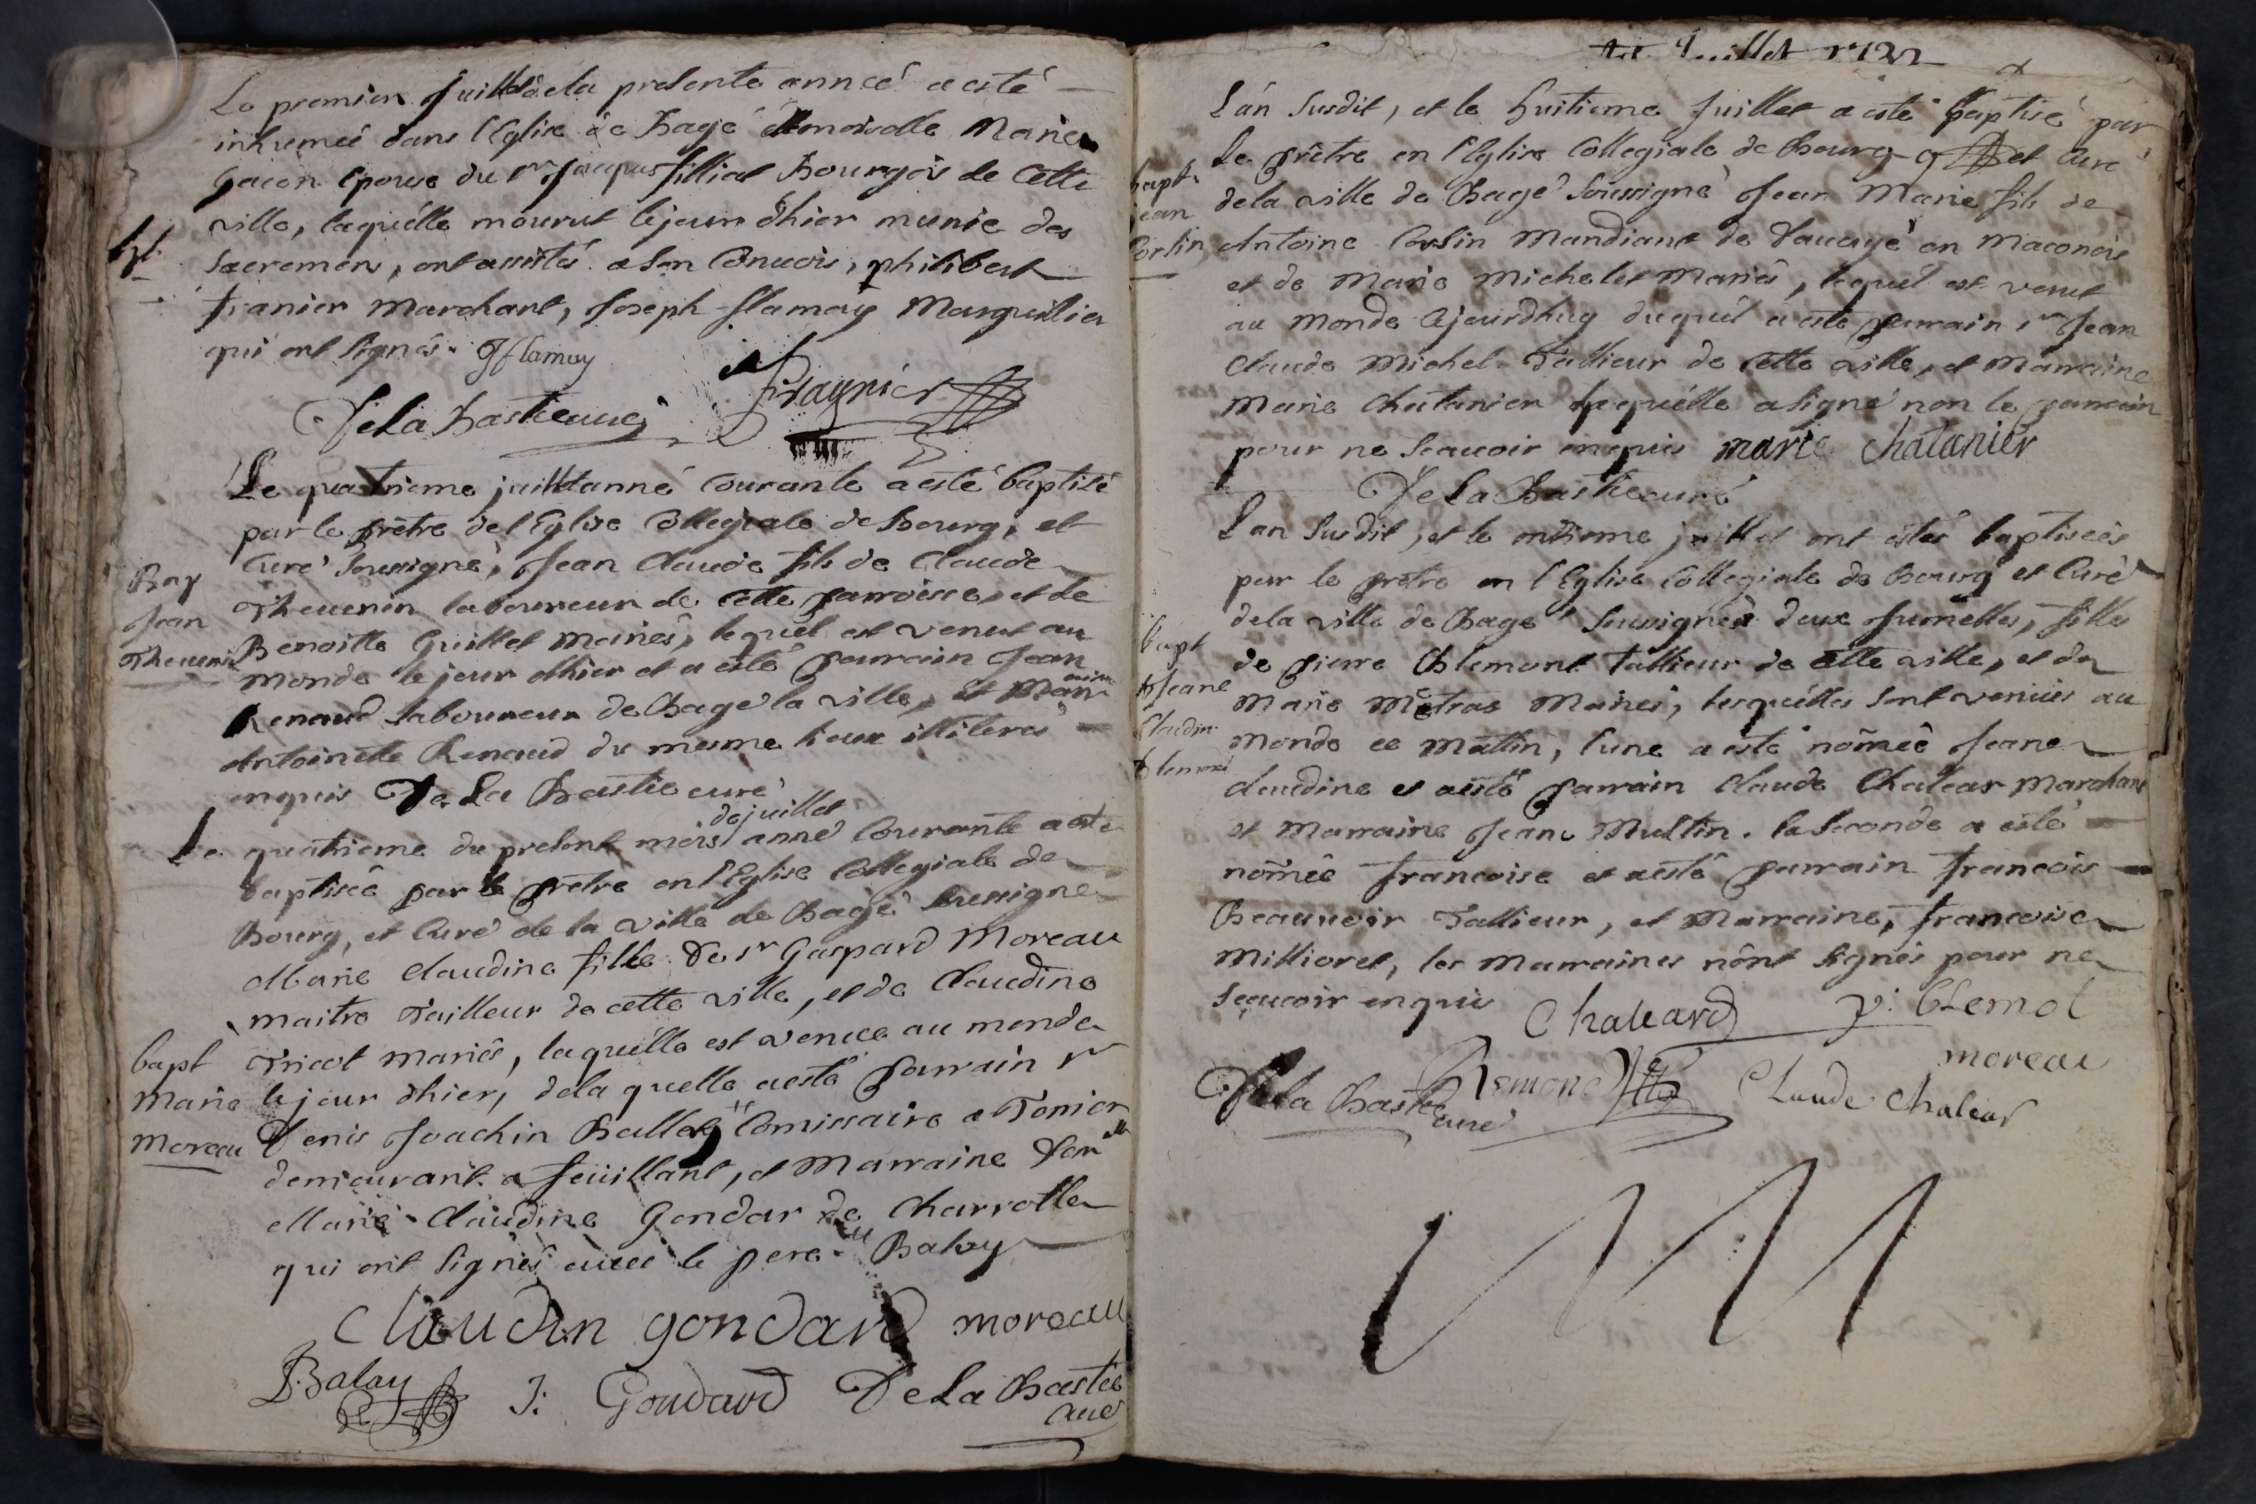 Le premier Juillet de la presente anneé a esté
inhumeé dans l'Eglise de Bagé demoiselle Marie
Gacon epouse du sr Jacques fillial Bourgois de Cette
ville, laquélle mourut le jour dhier munie des
Sacremens, ont assistés a son Convois, philibert
franier Marchant, Joseph flamay Marguillier
qui ont signés. J flamay
De La Bastie curé fragnier
Le quatrieme juillet anné Courante a esté baptisé
par le prêtre de l'Eglise Collegiale de Bourg, et
Curé soussigné, Jean Claude fils de Claude
Bap
Jean
Thevenin
Thevenin laboureur de Cette parroisse, et de
Benoitte Guillet mariés, lequel est venut au
monde le jour dhier et a esté parrain Jean
Renaud laboureur de Bagé la ville, et Marraine
Antoinette Renaud du mesme lieux illiterés
enquis De La Bastie curé
de juillet
Le quatrieme du present mois anné Courante a esté
baptisée par le prêtre en l'Eglise Collegiale de
Bourg, et Curé de la ville de Bagé soussigné
Marie Claudine fille de sr Gaspard Moreau
maitre Tailleur de cette ville, et de Claudine
bapt
Marie
Moreau
Tricot mariés, laquélle est venue au monde
le jour dhier, de la quelle a esté parrain sr
Denis Joachin Ballay Comissaire a Terrier
demeurant a feüillant, et Marraine demlle
Marie Claudine Gondar de Charrolle
qui ont signés avec le pere Balay
Claudin gondard moreau
Balay J: Goudard De La Bastie
curé
Juillet 1732
L'an susdit, et le huitieme Juillet a esté baptisé par
Le prêtre en l'Eglise Collegiale de Bourg et Curé
bapt
jean
Corlin
de la ville de Bagé soussigné Jean Marie fils de
Antoine Corlin Mandiant de en Maconois
et de Marie Michelet Mariés, lequél est venut
au Monde Cejourdhuy duquél a esté parrain sr Jean
Claude Michel Tallieur de Cette ville, et Marraine
Marie Chatanier laquélle a signé non le parrain
pour ne scavoir enquis marie Chatanier
De La Bastie curé
L'an susdit, et le ontieme juillet ont estés baptiseés
par le prêtre en l'Eglise Collegiale de Bourg et Curé
de la ville de Bagé soussigné deux Jumelles, filles
bapt
Jeane
Claudine
Clemont
de pierre Clemont Tallieur de Cette ville, et de
Marie Métras Mariés, lesquélles sont venües au
monde ce matin, l'une a esté nom̃eé Jeane
claudine et a esté parrain claude Chalear Marchant
et Marraine Jeane Multin. la seconde a esté
nom̃eé francoise et a esté parrain francois
Beauvoir Tallieur, et Marraine, francoise
Millioret, les Marraines nônt signés pour ne
scavoir enquis Chaleard p: Clemot
moreau
De La Bastie curé Claude Chalear